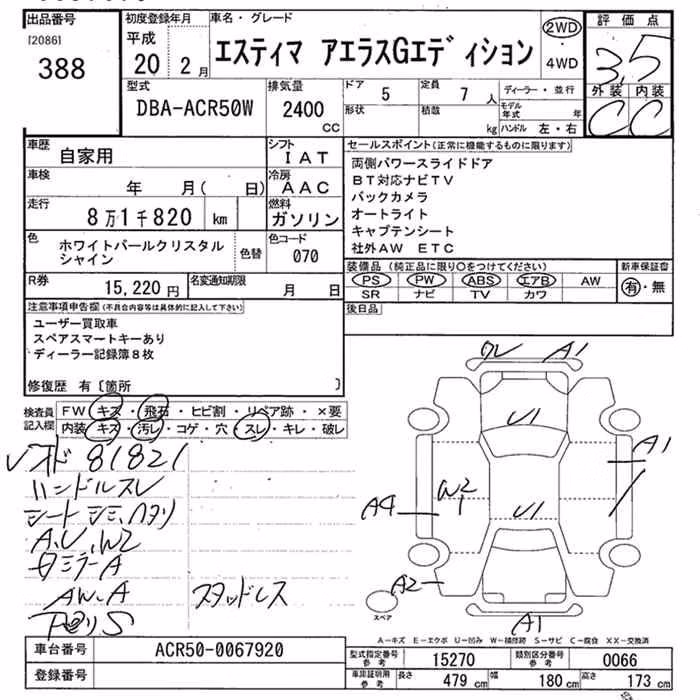 出品番号 初度登録年月 車名・グレード 2WD 評価点
[2086] 平成
388 20 2月 エスティマ アエラスGエディション 4WD 3.5
型式 排気量 ドア 5 定員 7人 ディーラー・並行 外装 内装
DBA-ACR50W 2400 cc 形状 積載 kg モデル年式 年 ハンドル 左・右 C C
車歴 自家用 シフト IAT セールスポイント(正常に機能するものに限ります)
車検 年 月( 日) 冷房 AAC 両側パワースライドドア
BT対応ナビTV
走行 8万1千820 km 燃料 ガソリン バックカメラ
オートライト
色 ホワイトパールクリスタル 色替 色コード キャプテンシート
シャイン 070 社外AW ETC
R券 15,220円 名変通知期限 月 日 装備品(純正品に限り○をつけてください) 新車保証書
PS PW ABS エアB AW 有・無
SR ナビ TV カワ
注意事項申告欄(不具合内容等は具体的に記入して下さい) 後日品
ユーザー買取車
スペアスマートキーあり
ディーラー記録簿8枚
修復歴 有[箇所 ]
検査員 FW キズ・飛石・ヒビ割・リペア跡・×要
記入欄 内装 キズ・汚レ・コゲ・穴・スレ・キレ・破レ
81821
ハンドルスレ
シート シミ、ヘタリ
A,U,W2
ミラーA
AW、A スタッドレス
A1
U1
A1
A4 W2
U1
A2
スペア A1
A-キズ E-エクボ U-凹み W-補修跡 S-サビ C-腐食 XX-交換済
車台番号 ACR50-0067920 型式指定番号 参考 15270 類別区分番号 参考 0066
登録番号 車庫証明用 参考 長さ 479 cm 幅 180 cm 高さ 173 cm